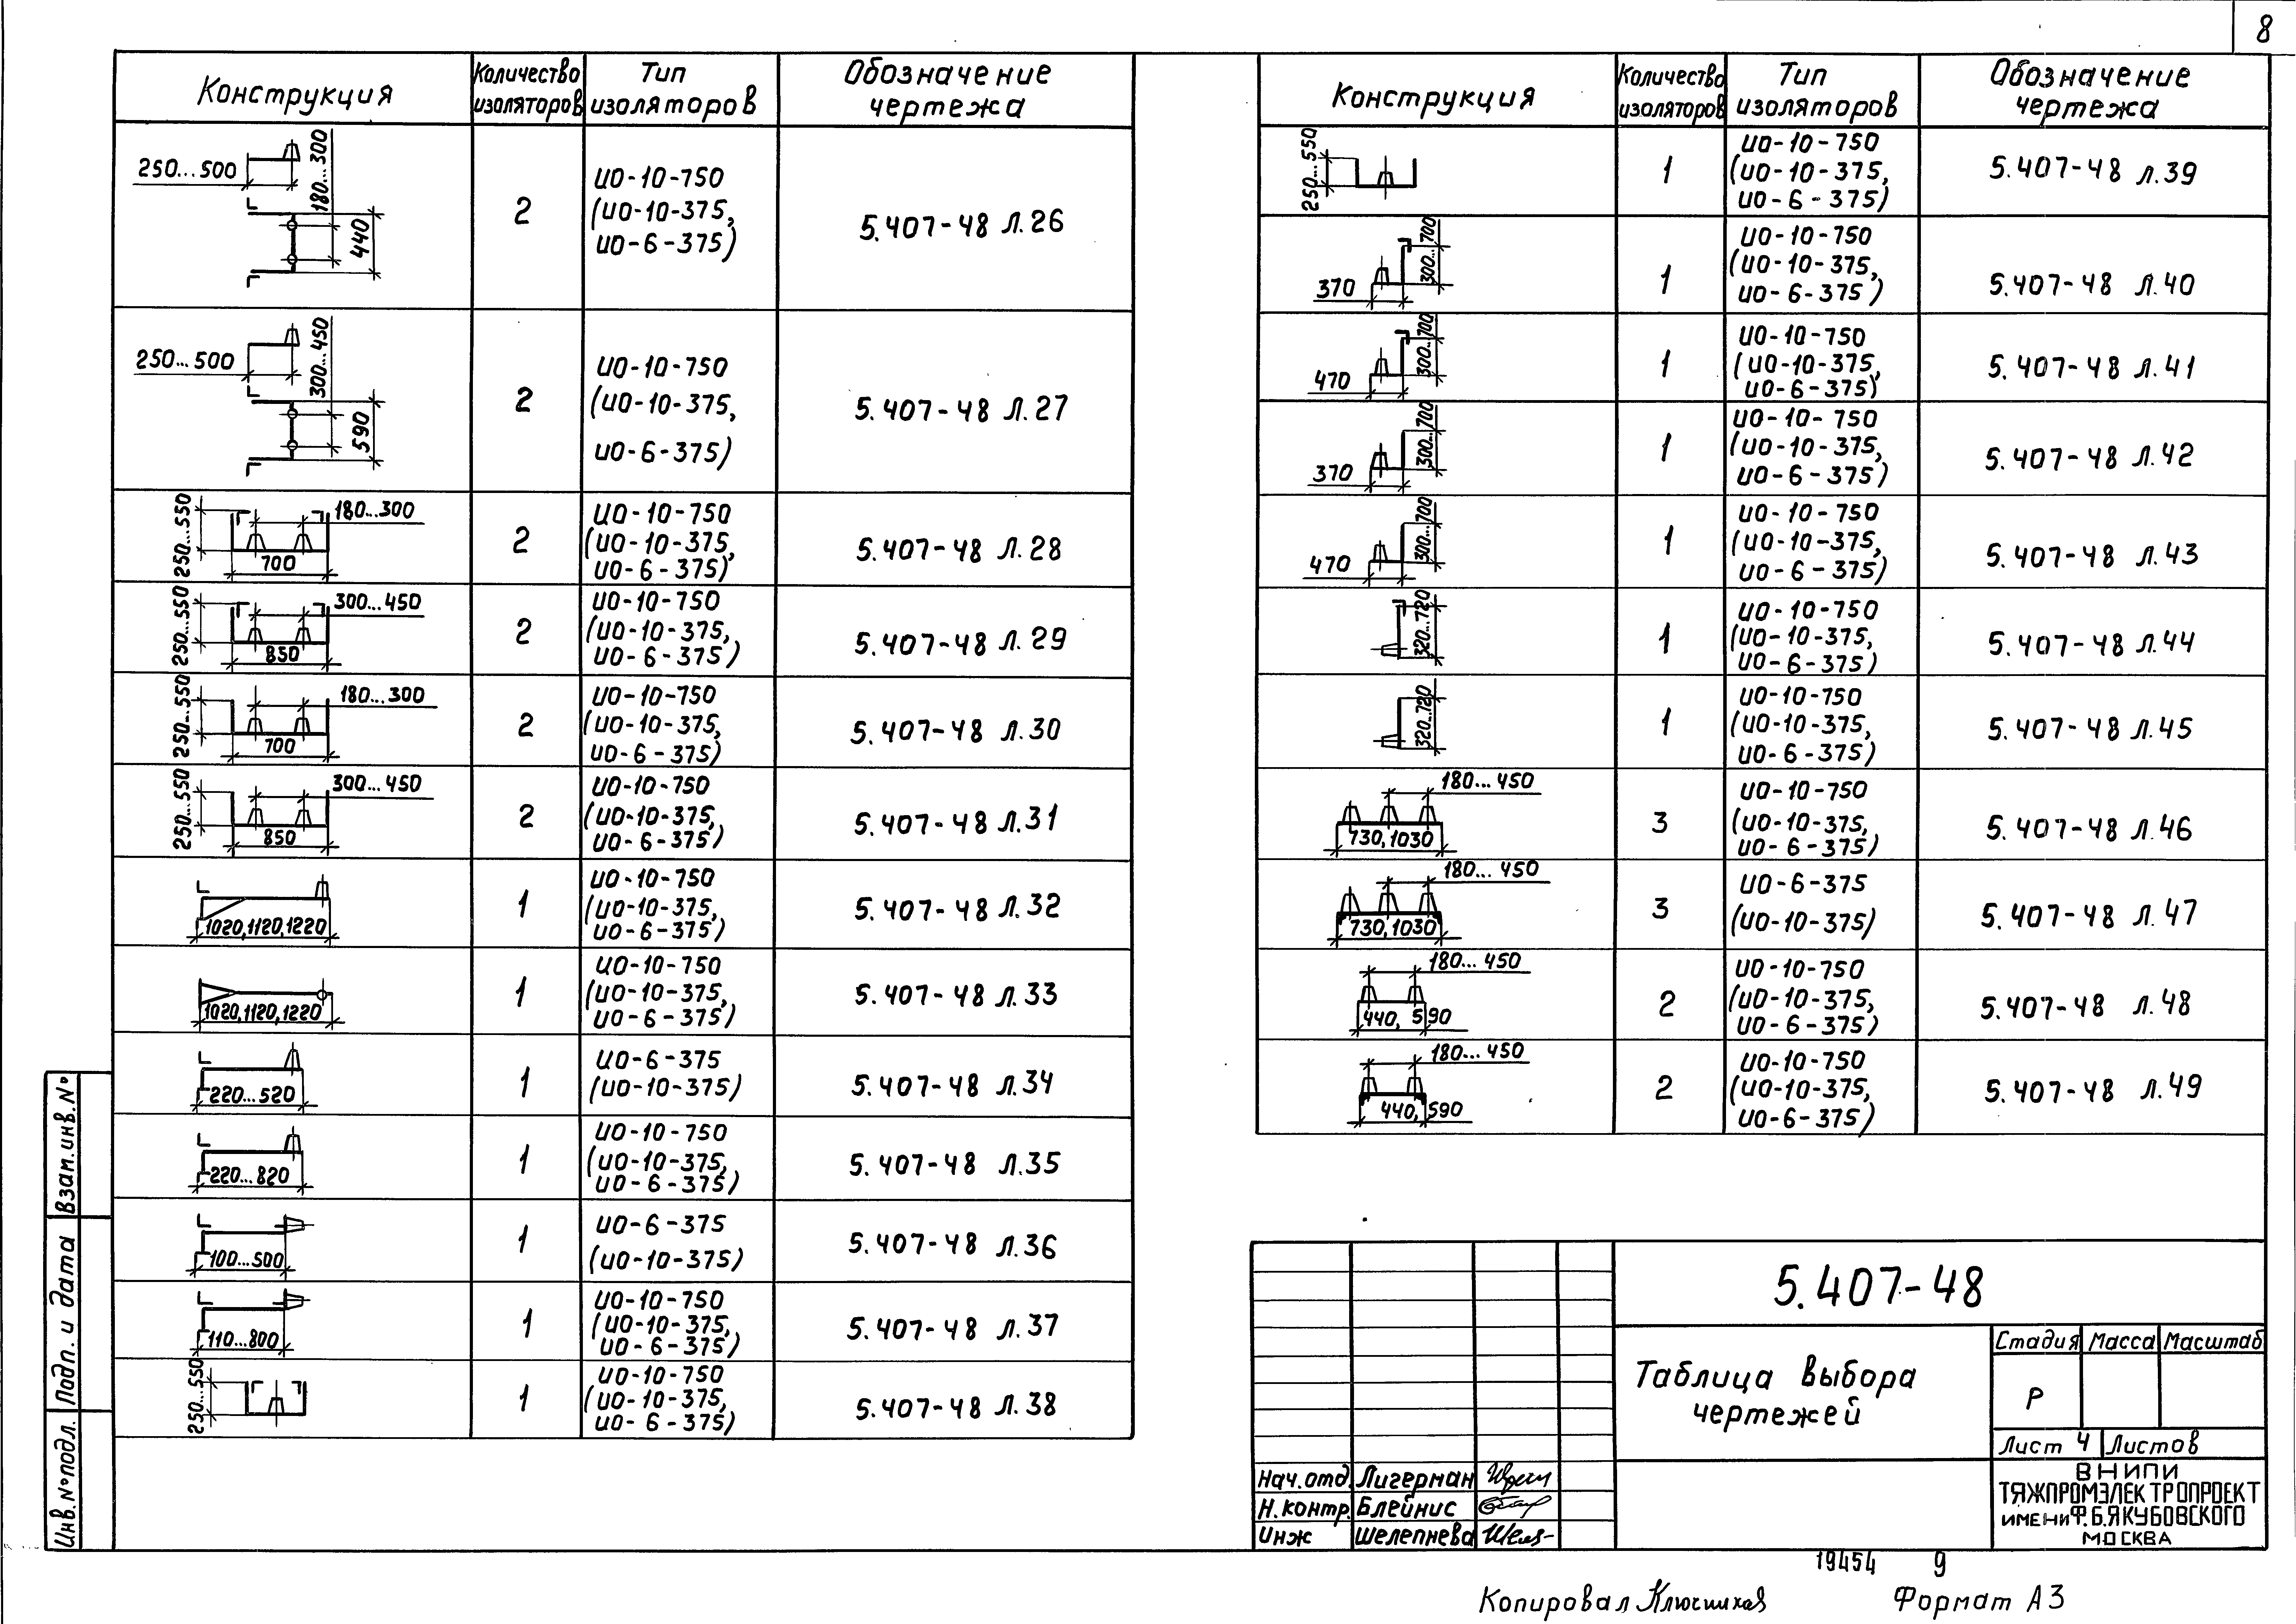 8
Конструкция
Количество изоляторов
Тип изоляторов
Обозначение чертежа
250...500
180...300
440
2
ИО-10-750
(ИО-10-375,
ИО-6-375)
5.407-48 Л.26
250...500
300...450
590
2
ИО-10-750
(ИО-10-375,
ИО-6-375)
5.407-48 Л.27
250...550
180...300
700
2
ИО-10-750
(ИО-10-375,
ИО-6-375)
5.407-48 Л.28
250...550
300...450
850
2
ИО-10-750
(ИО-10-375,
ИО-6-375)
5.407-48 Л.29
250...550
180...300
700
2
ИО-10-750
(ИО-10-375,
ИО-6-375)
5.407-48 Л.30
250...550
300...450
850
2
ИО-10-750
(ИО-10-375,
ИО-6-375)
5.407-48 Л.31
1020,1120,1220
1
ИО-10-750
(ИО-10-375,
ИО-6-375)
5.407-48 Л.32
1020,1120,1220
1
ИО-10-750
(ИО-10-375,
ИО-6-375)
5.407-48 Л.33
220...520
1
ИО-6-375
(ИО-10-375)
5.407-48 Л.34
220...820
1
ИО-10-750
(ИО-10-375,
ИО-6-375)
5.407-48 Л.35
100...500
1
ИО-6-375
(ИО-10-375)
5.407-48 Л.36
110...800
1
ИО-10-750
(ИО-10-375,
ИО-6-375)
5.407-48 Л.37
250...550
1
ИО-10-750
(ИО-10-375,
ИО-6-375)
5.407-48 Л.38
Конструкция
Количество изоляторов
Тип изоляторов
Обозначение чертежа
250...550
1
ИО-10-750
(ИО-10-375,
ИО-6-375)
5.407-48 Л.39
370
300...700
1
ИО-10-750
(ИО-10-375,
ИО-6-375)
5.407-48 Л.40
470
300...700
1
ИО-10-750
(ИО-10-375,
ИО-6-375)
5.407-48 Л.41
370
300...700
1
ИО-10-750
(ИО-10-375,
ИО-6-375)
5.407-48 Л.42
470
300...700
1
ИО-10-750
(ИО-10-375,
ИО-6-375)
5.407-48 Л.43
320...720
1
ИО-10-750
(ИО-10-375,
ИО-6-375)
5.407-48 Л.44
320...720
1
ИО-10-750
(ИО-10-375,
ИО-6-375)
5.407-48 Л.45
180...450
730,1030
3
ИО-10-750
(ИО-10-375,
ИО-6-375)
5.407-48 Л.46
180...450
730,1030
3
ИО-6-375
(ИО-10-375)
5.407-48 Л.47
180...450
440, 590
2
ИО-10-750
(ИО-10-375,
ИО-6-375)
5.407-48 Л.48
180...450
440, 590
2
ИО-10-750
(ИО-10-375,
ИО-6-375)
5.407-48 Л.49
Взап.инв.N°
Подп. и дата
Инв.N°подл.
5.407-48
Таблица выбора
чертежей
Стадия Масса Масштаб
Р
Лист 4 Листов
ВНИПИ
ТЯЖПРОМЭЛЕКТРОПРОЕКТ
ИМЕНИ Ф.Б.ЯКУБОВСКОГО
МОСКВА
Нач.отд. Лигерман
Н.контр. Блейнис
Инж Шелепнева
19454 9
Копировал
Формат А3